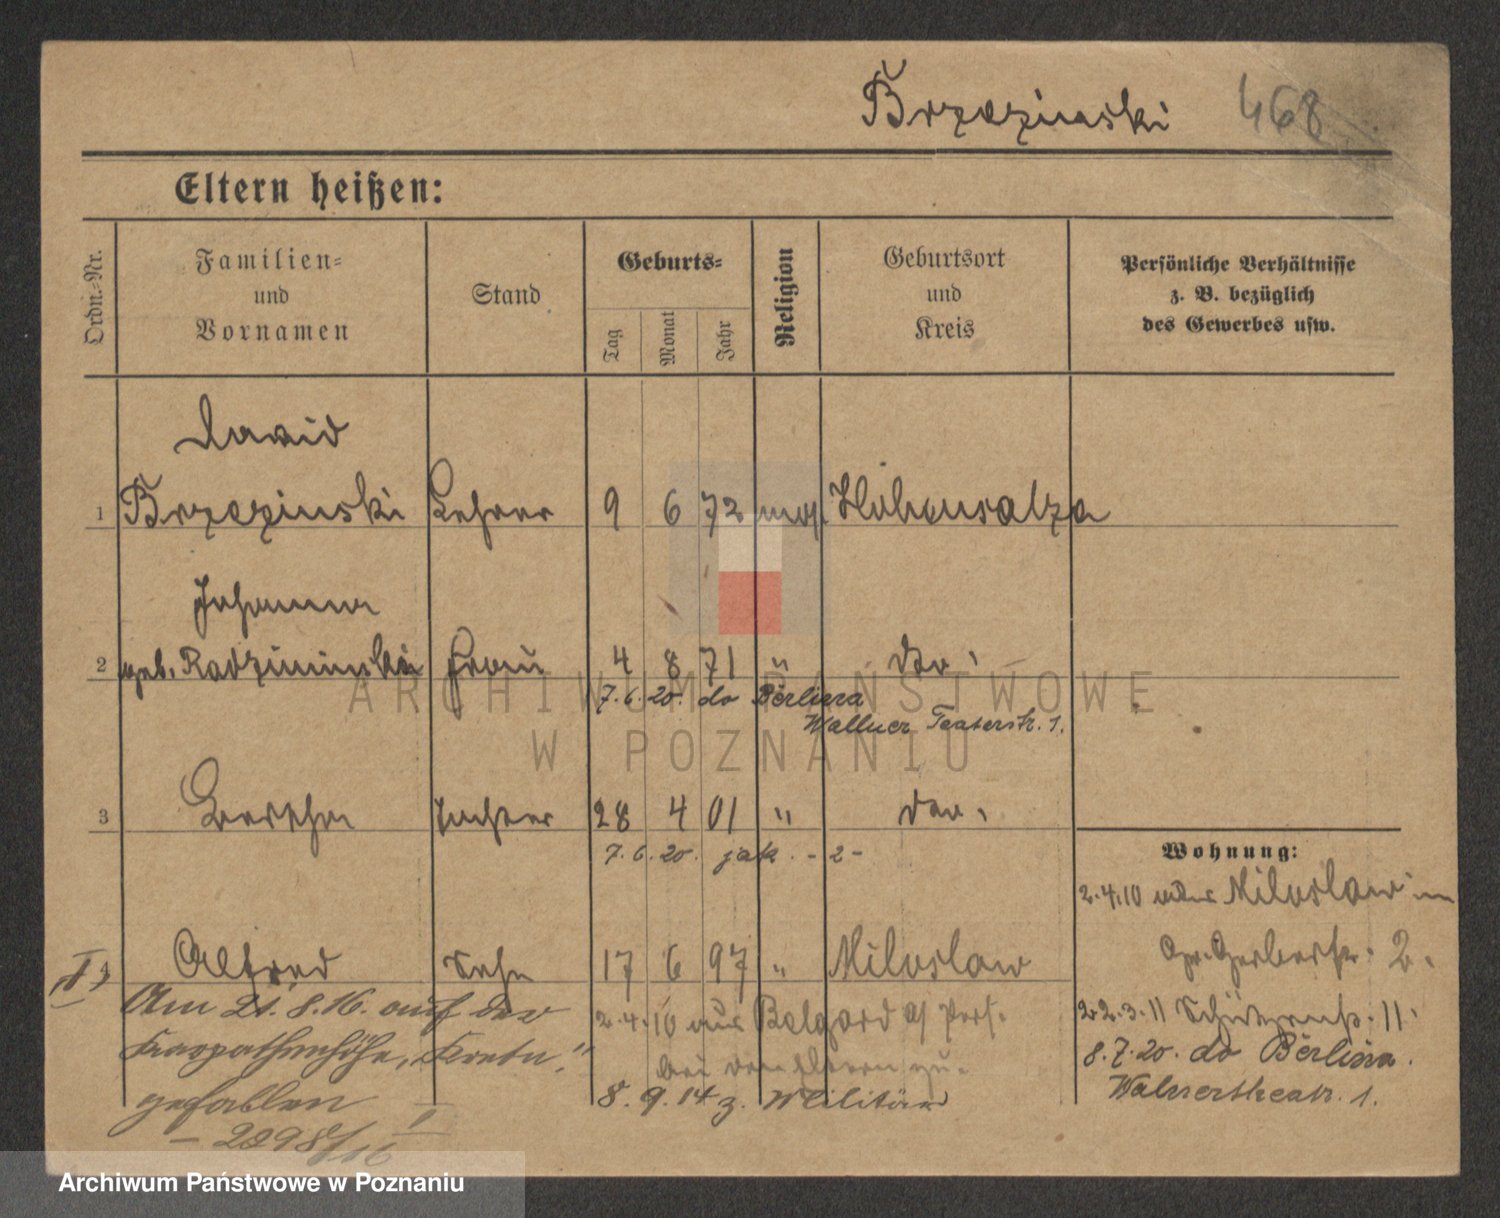 Brzezinski 468
Eltern heißen:
Ordn.-Nr.
Familien-
und
Vornamen
Stand
Geburts-
Tag
Monat
Jahr
Religion
Geburtsort
und
Kreis
Persönliche Verhältnisse
z. B. bezüglich
des Gewerbes usw.
David
1 Brzezinski Lehrer 9 6 72 mos. Hohensalza
Johanna
2 geb. Radziminska Frau 4 8 71 " do.
7.6.20. do Berlina
Wallner Teaterstr. 1.
3 Bertha Tochter 28 4 01 " do.
7.6.20. jak. - 2 -
Wohnung:
2.4.10 aus Miloslaw in
Gr. Gerberstr. 2.
4 Alfred Sohn 17 6 97 " Miloslaw
Am 21.8.16. auf der
Karpathenhöhe, Kreta."
gefallen
2.4.10 aus Belgard a/ Pers.
bei den Eltern zu.
8.9.14 z. Militär
22.3.11 Schützenstr. 11.
8.7.20. do Berlina.
Walnertheatr. 1.
- 2298/16
ARCHIWUM PAŃSTWOWE
W POZNANIU
Archiwum Państwowe w Poznaniu